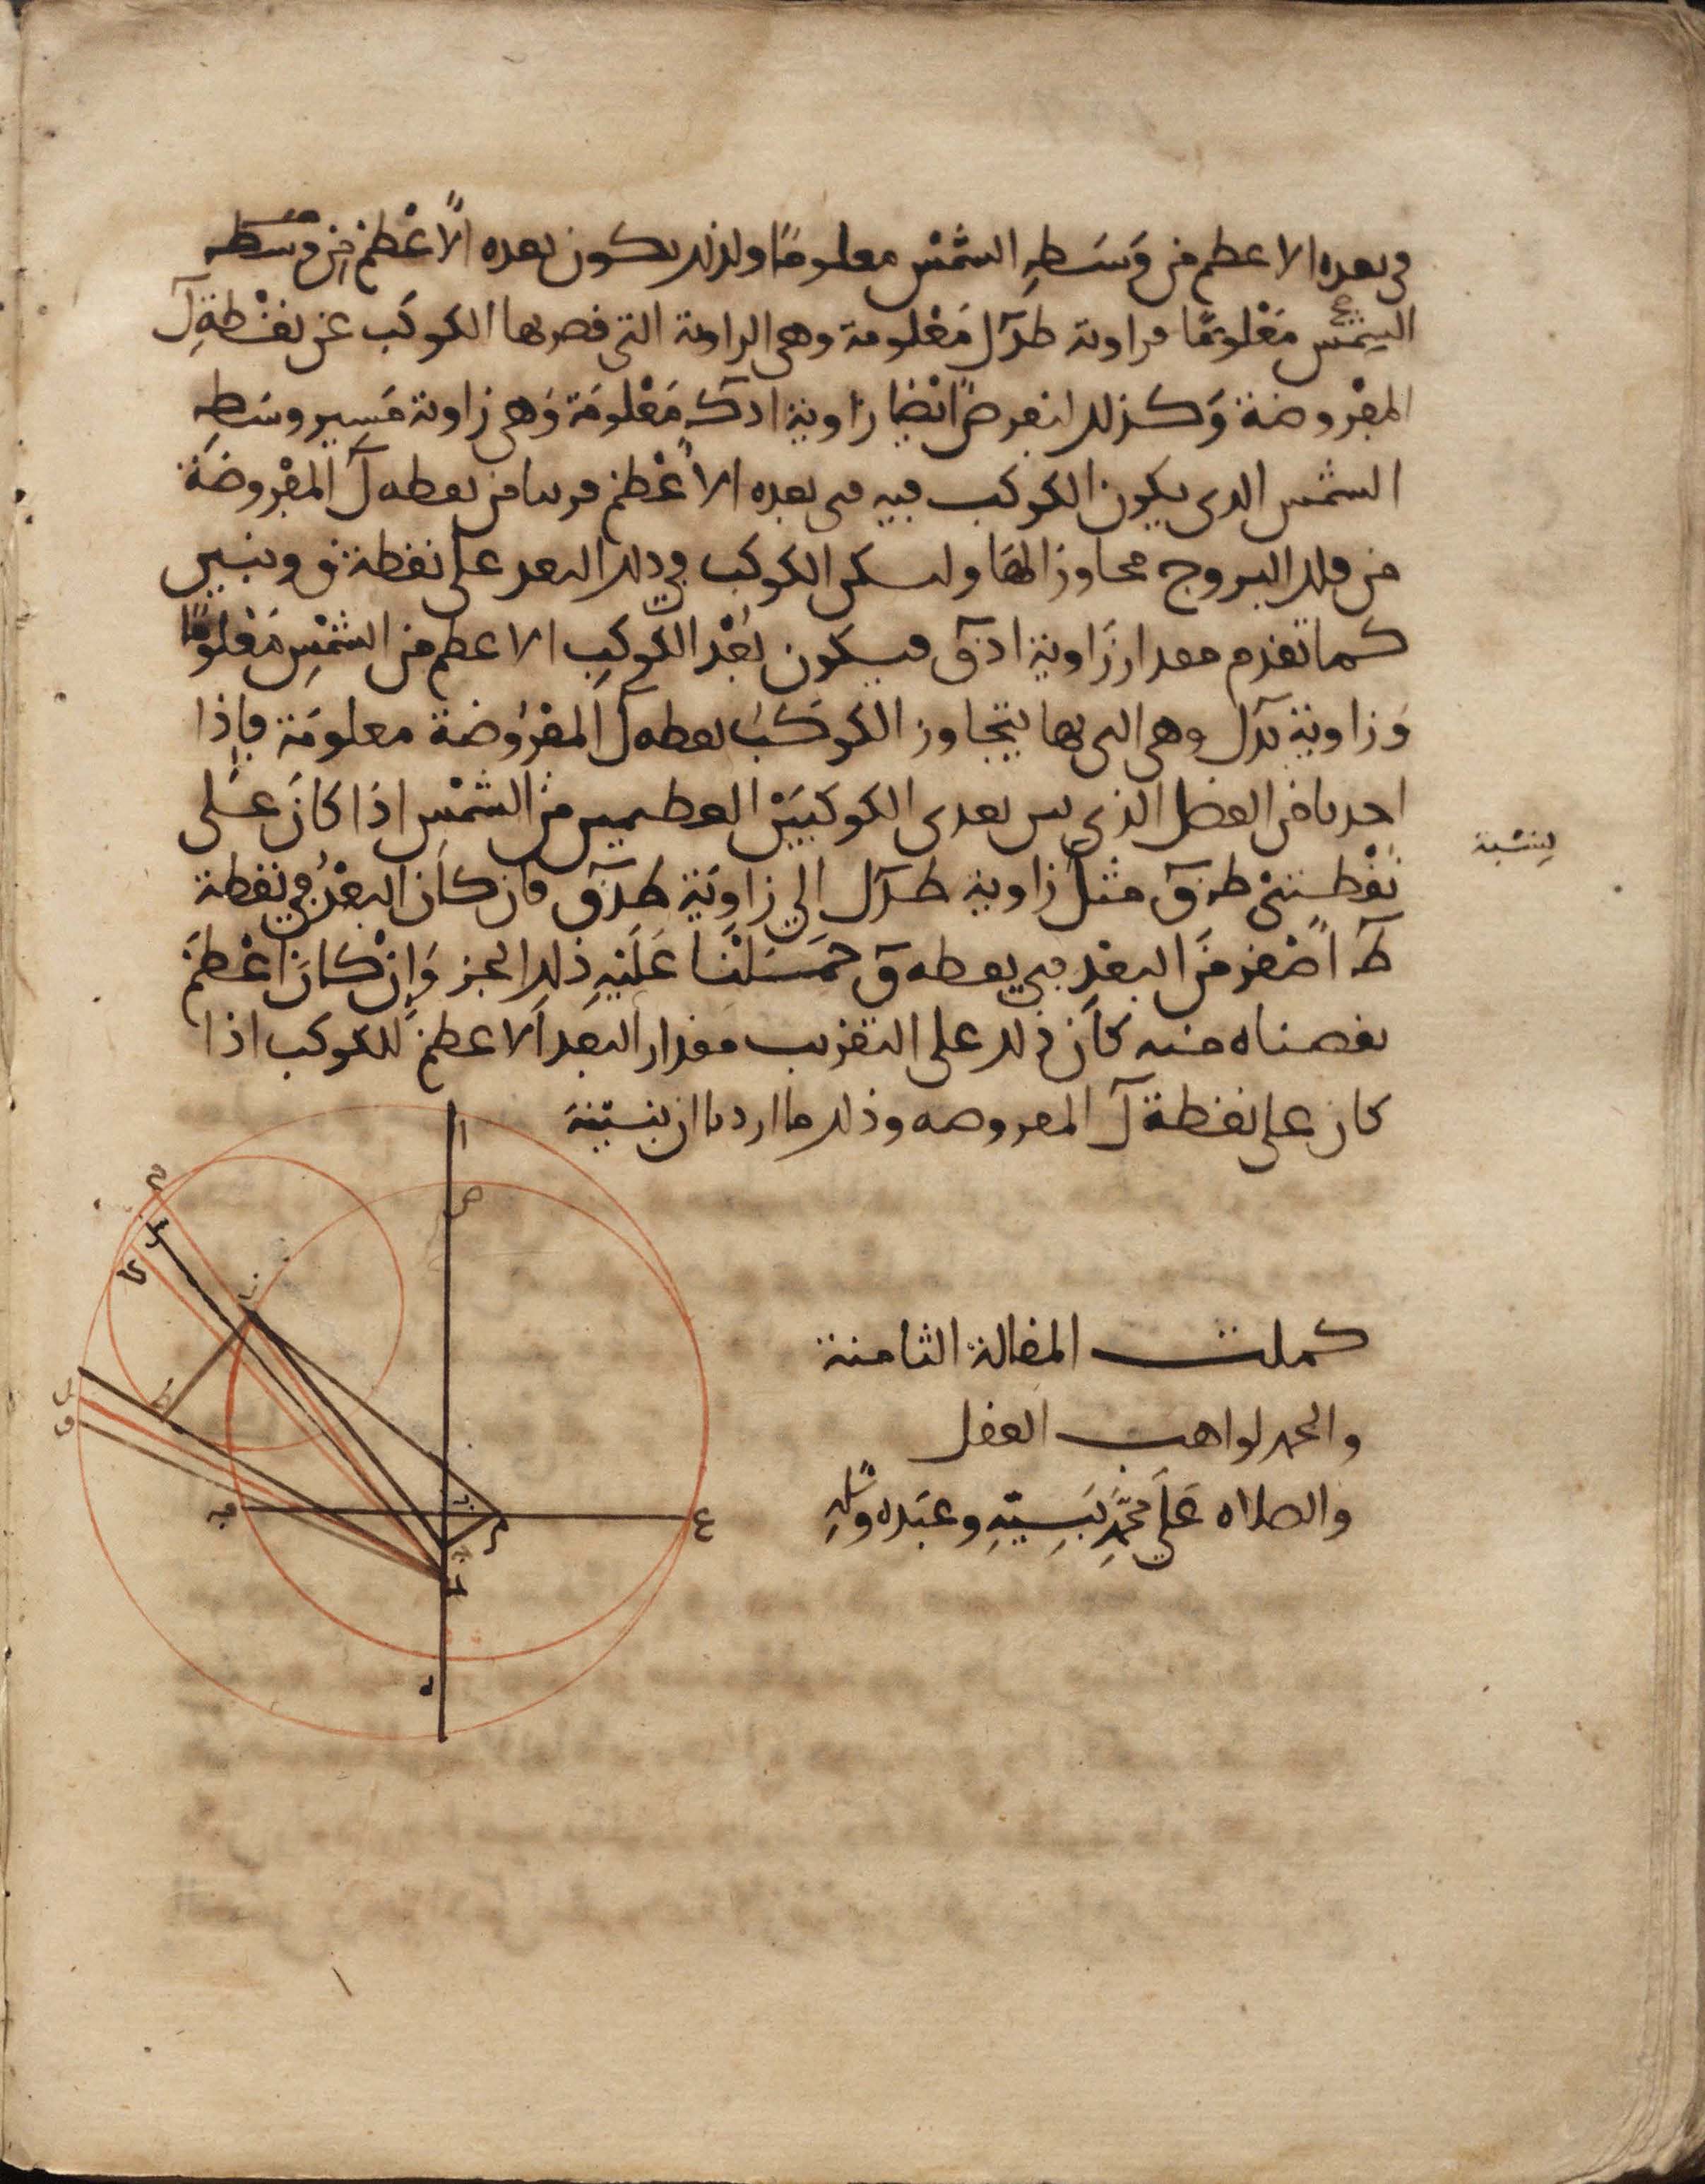 في بعده الاعظم من وَسَطِهِ الشمْس معلومًا ولذلك يكون بعده الأعْظمُ مِن وسَطه
الشمس مَعْلومًا فزاوية طدل مَعْلومة وهي الزاوية التي قصر بها الكوكَب عَن نقْطةِ ل
المفْروضة وَكذلك انفرض أيْضًا زاوية ادك مَعْلومَة وَهي زاوية مَسِير وسَطِهِ
الشمس الذي يكون الكوكب فيه في بعده الأعْظم قريبا من نقطه ل المفْروضَة
من فلك البروج مجاوزا لهَا وليكن الكوكب في ذلك البعد على نقطة ق ونبين
كما تقدم مقدار زَاوية ادق فيكون بُعْد الكوكبِ الاعظم من الشمْسِ مَعْلومًا
وَزاوية قدل وهي التي بها يتجاوز الكوكَبُ نقطه ل المفْرُوضة معلومَة فإذا
اخذنا من الفضل الذي بين بعدى الكوكبيَنْ العظيمين من الشمْسِ اذا كانَ عَلى
نقْطتيْ ط ق مثْلَ زاوية طدل إلي زاوِيَة طدق فان كان البعْدُ في نقطة
ط أصْغر منَ البعْدِ في نقطه ق حمَلْنَا عَلَيْهِ ذلك الجز وَإنْ كانَ اعْظمَ
نقصناه منه كانَ ذلك على التقريب مقدار البعد الاعظمَ للكوكب اذا
كان على نقطة ل المفروضه وذلك ما اردنا ان نبَيّنهَ
بنسْبة
كملت المقالة الثامنة
والحمد لواهب العقل
والصلاه عَلَى محَمّدٍ نَبِيّهِ وعَبَده